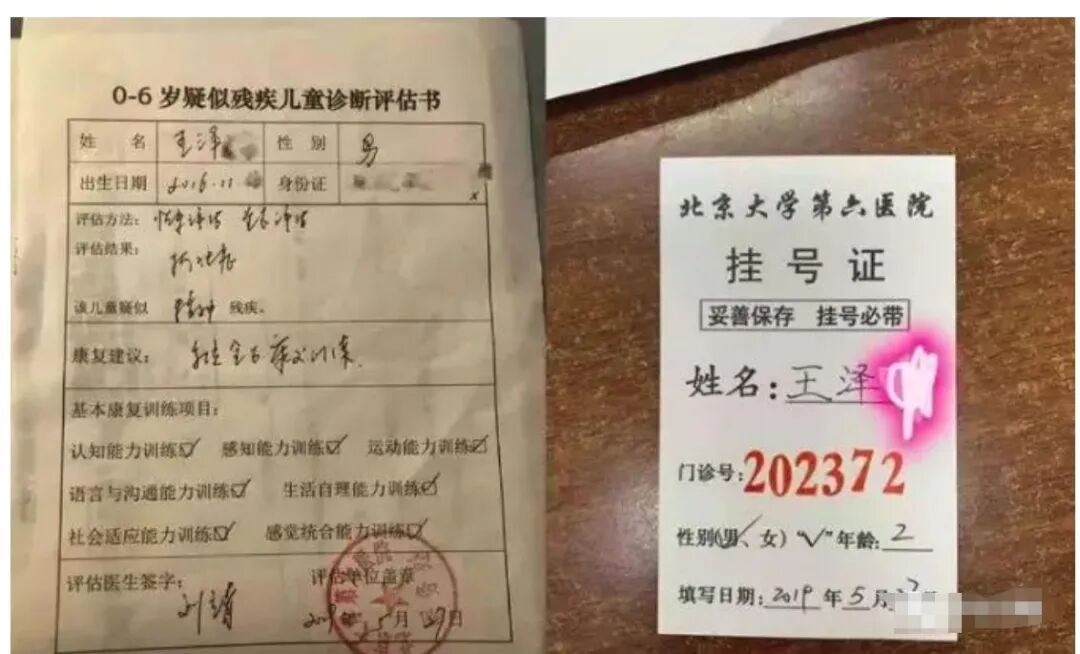 0-6岁疑似残疾儿童诊断评估书
姓 名 王泽 性 别 男
出生日期 2016.11 身份证
评估方法:
评估结果:
该儿童疑似 精神 残疾。
康复建议:
基本康复训练项目:
认知能力训练☑ 感知能力训练☑ 运动能力训练☑
语言与沟通能力训练☑ 生活自理能力训练☑
社会适应能力训练☑ 感觉统合能力训练☑
评估医生签字: 评估单位盖章
刘靖 2019年5月27日
北京大学第六医院
挂号证
妥善保存 挂号必带
姓名:王泽
门诊号:202372
性别(男、女)"√"年龄:2
填写日期:2019年5月27日